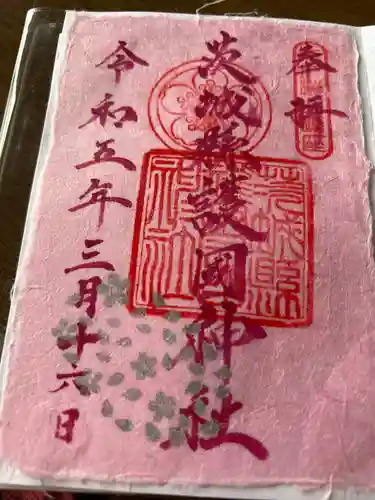 奉拝
茨城縣護國神社
令和五年三月十六日